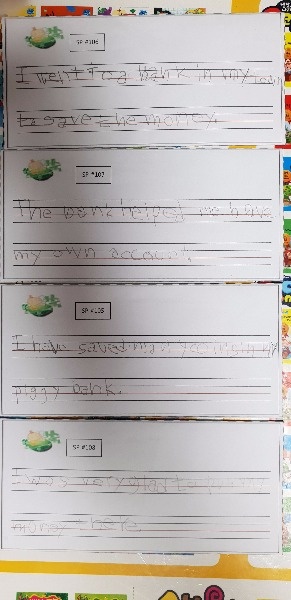 SP #106
I went to a bank in my town
to save the money.
SP #107
The bank helped me have
my own account.
SP #105
I have saved many coins in my
piggy bank.
SP #108
I was very glad to my
money there.